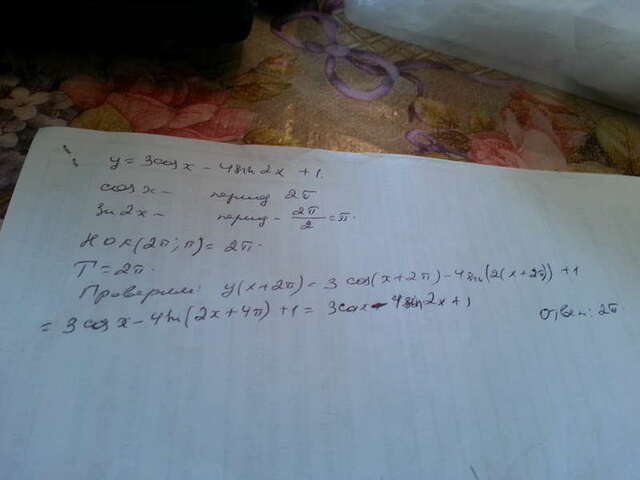 y = 3cos x - 4sin 2x + 1.
cos x - период 2π
sin 2x - период - 2π/2 = π.
НОК(2π; π) = 2π.
T = 2π.
Проверяем: y(x+2π) = 3 cos(x+2π) - 4sin(2(x+2π)) + 1
= 3 cos x - 4sin(2x+4π) + 1 = 3cos x - 4sin 2x + 1
Ответ: 2π.